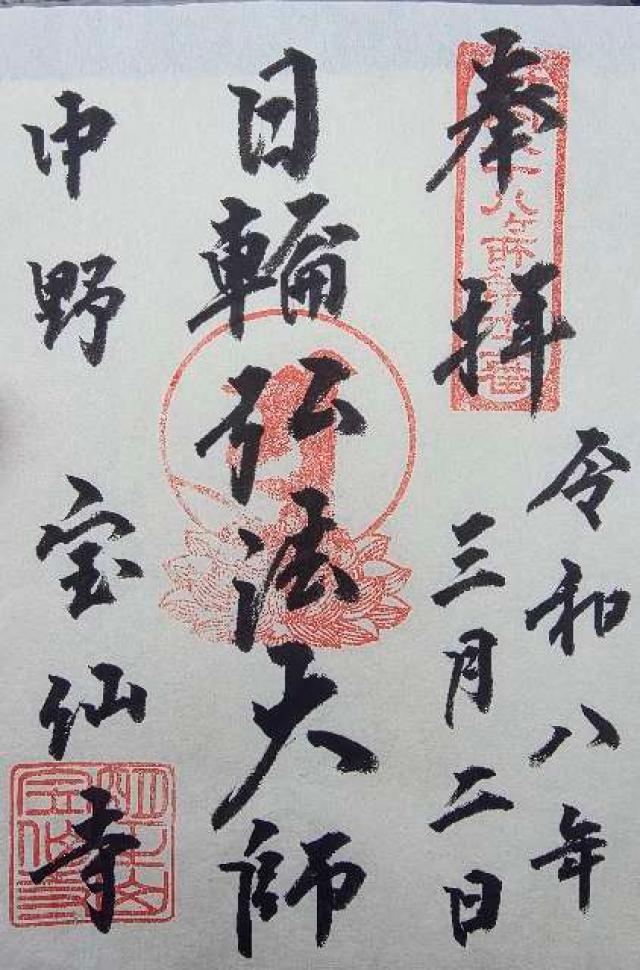 奉拝
令和八年
三月二日
日輪弘法大師
中野 宝仙寺